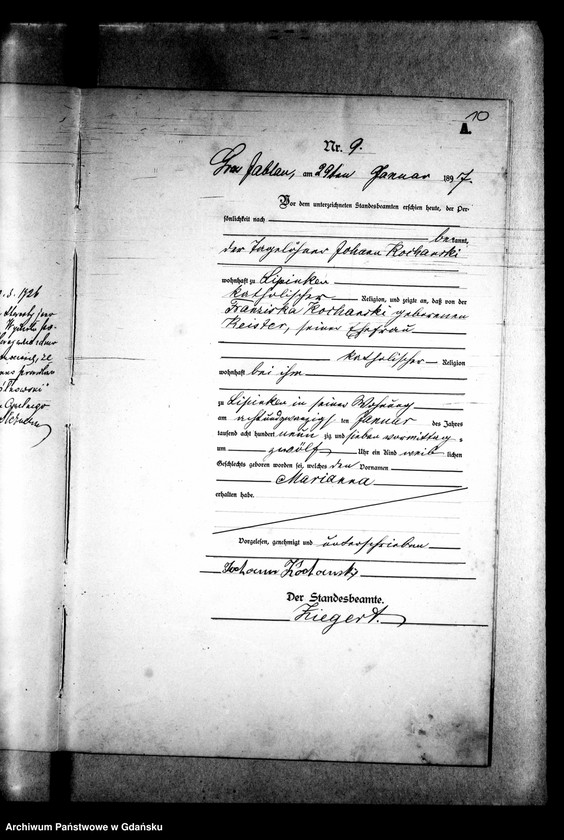 10
A.
Nr. 9
Gr. Jablau, am 29ten Januar 1897.
Vor dem unterzeichneten Standesbeamten erschien heute, der Per-
sönlichkeit nach
bekannt,
der Tagelöhner Johann Kochanski
wohnhaft zu Lipinken
katholischer Religion, und zeigte an, daß von der
Franziska Kochanski geborenen
seiner Ehefrau
katholischer Religion
wohnhaft bei ihm
zu Lipinken in seiner Wohnung
am achtundzwanzigsten ten Januar des Jahres
tausend acht hundert neun zig und sieben vormittag s
um zwölf Uhr ein Kind weib lichen
Geschlechts geboren worden sei, welches den Vornamen
Marianna
erhalten habe.
Vorgelesen, genehmigt und unterschrieben
Johann
Der Standesbeamte.
Ziegert.
Archiwum Państwowe w Gdańsku